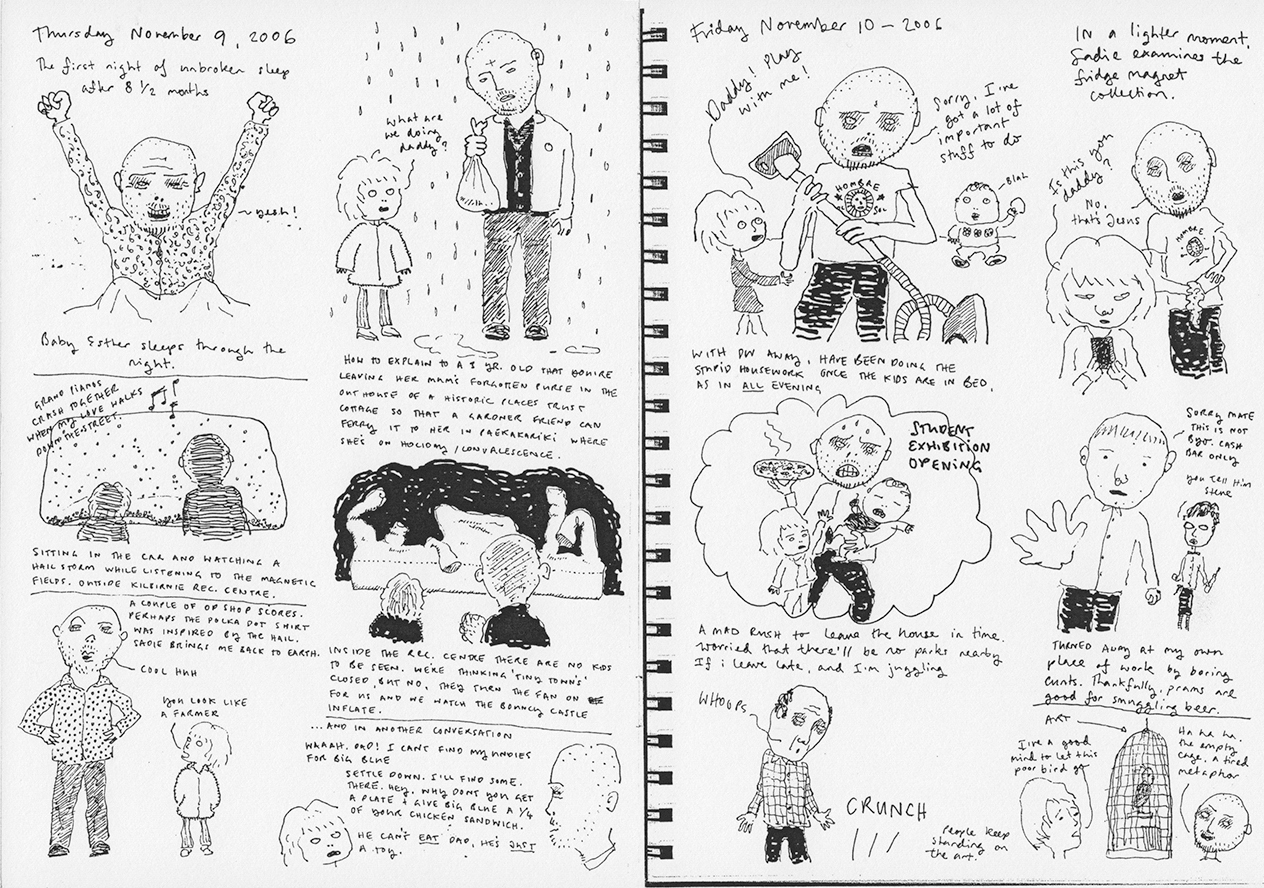 Thursday November 9, 2006
The first night of unbroken sleep
after 8 1/2 months
yeah!
Baby Esther sleeps through the
night.
GRAND PIANOS
CRASH TOGETHER
WHEN MY LOVE WALKS
DOWN THE STREET.
SITTING IN THE CAR AND WATCHING A
HAIL STORM WHILE LISTENING TO THE MAGNETIC
FIELDS. OUTSIDE KILBIRNIE REC. CENTRE.
A COUPLE OF OP SHOP SCORES.
PERHAPS THE POLKA DOT SHIRT
WAS INSPIRED BY THE HAIL.
SADIE BRINGS ME BACK TO EARTH.
COOL HUH
YOU LOOK LIKE
A FARMER
What are
we doing
daddy?
HOW TO EXPLAIN TO A 3 YR. OLD THAT YOU'RE
LEAVING HER MAM'S FORGOTTEN PURSE IN THE
OUTHOUSE OF A HISTORIC PLACES TRUST
COTTAGE SO THAT A GARDNER FRIEND CAN
FERRY IT TO HER IN PAEKAKARIKI WHERE
SHE'S ON HOLIDAY / CONVALESCENCE.
INSIDE THE REC. CENTRE THERE ARE NO KIDS
TO BE SEEN. WE'RE THINKING 'TINY TOWN'S'
CLOSED. BUT NO, THEY TURN THE FAN ON
FOR US AND WE WATCH THE BOUNCY CASTLE
INFLATE.
...AND IN ANOTHER CONVERSATION
WAAAH, DAD! I CAN'T FIND MY UNDIES
FOR BIG BLUE
SETTLE DOWN. I'LL FIND SOME.
THERE. HEY. WHY DON'T YOU GET
A PLATE + GIVE BIG BLUE A 1/4
OF YOUR CHICKEN SANDWICH.
HE CAN'T EAT DAD, HE'S JUST
A TOY.
Friday November 10 — 2006
Daddy! Play
with me!
Sorry, I've
got a lot of
important
stuff to do
HOMBRE
SOL
Blah
WITH DW AWAY, HAVE BEEN DOING THE
STUPID HOUSEWORK ONCE THE KIDS ARE IN BED,
AS IN ALL EVENING
STUDENT
EXHIBITION
OPENING
A MAD RUSH to leave the house in time.
Worried that there'll be no parks nearby
If i leave late, and I'm juggling
WHOOPS
CRUNCH
People keep
standing on
the art.
IN a lighter moment,
Sadie examines the
fridge magnet
collection.
Is this you
daddy?
No,
that's Jesus
HOMBRE
Sorry mate
this is not
BYO. Cash
bar only
you tell him
Steve
TURNED Away at my own
place of work by boring
cunts. Thankfully, prams are
good for smuggling beer.
ART
I've a good
mind to let this
poor bird go
Ha ha ha.
The empty
cage, a tired
metaphor